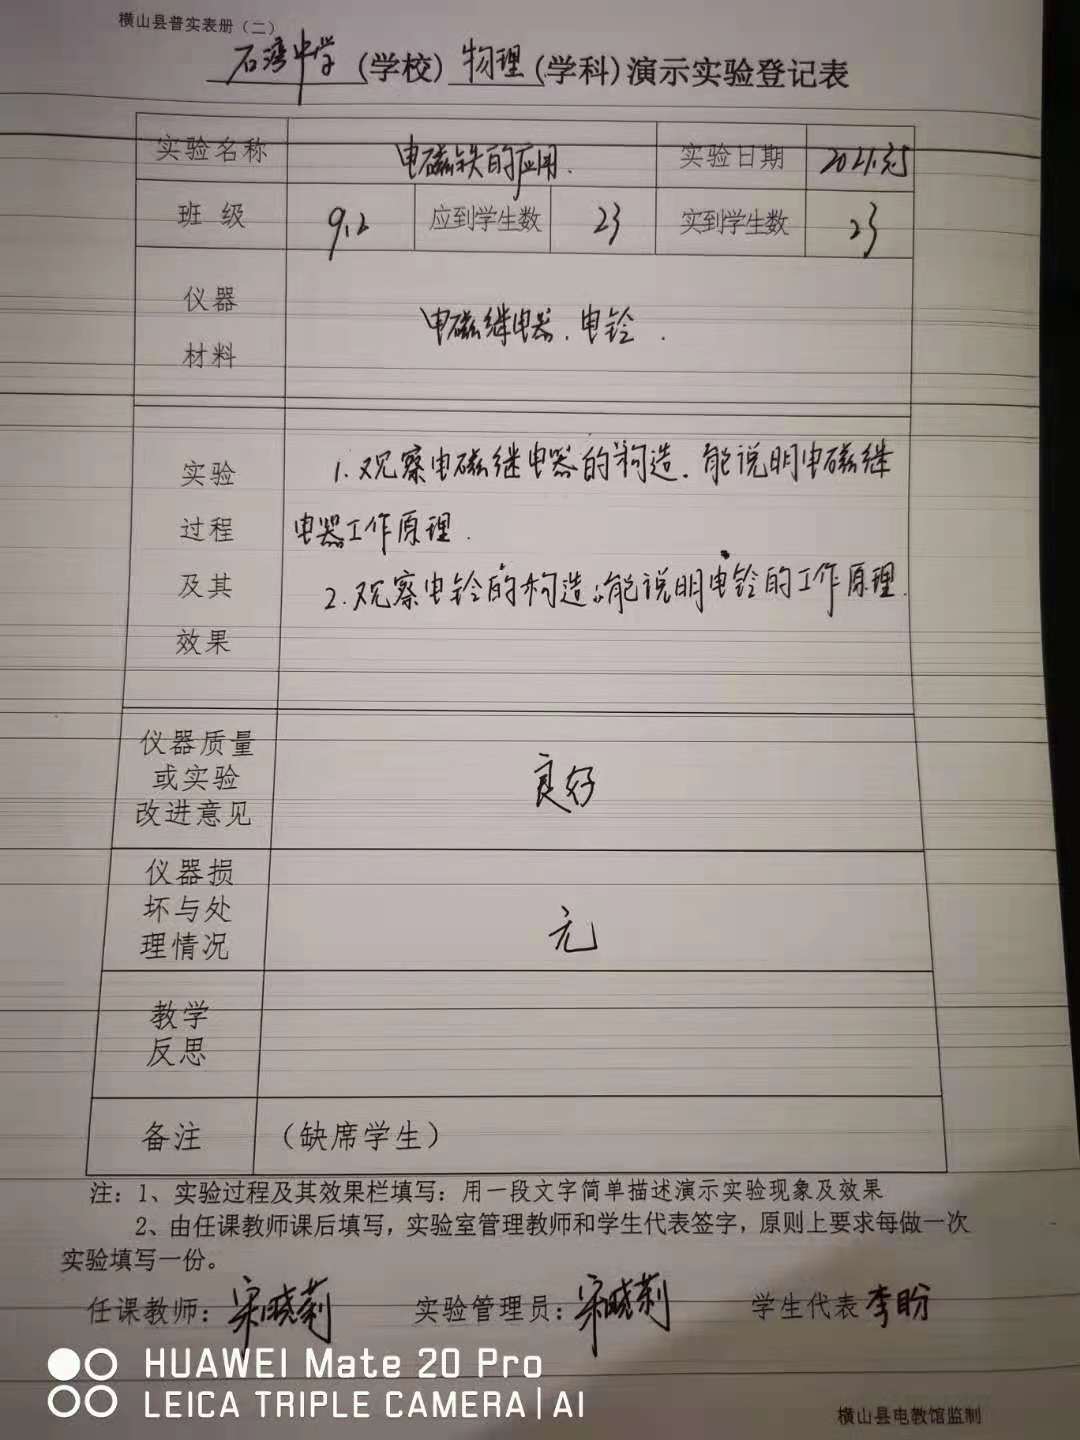 横山县普实表册（二）
石湾中学（学校）物理（学科）演示实验登记表
实验名称 电磁铁的应用. 实验日期
班 级 9.2 应到学生数 23 实到学生数 23
仪器
材料
电磁继电器.电铃.
实验
过程
及其
效果
1.观察电磁继电器的构造.能说明电磁继
电器工作原理.
2.观察电铃的构造.能说明电铃的工作原理.
仪器质量
或实验
改进意见
良好
仪器损
坏与处
理情况
无
教学
反思
备注 （缺席学生）
注：1、实验过程及其效果栏填写：用一段文字简单描述演示实验现象及效果
2、由任课教师课后填写，实验室管理教师和学生代表签字，原则上要求每做一次
实验填写一份。
任课教师：宋晓莉 实验管理员：宋晓莉 学生代表 李盼
HUAWEI Mate 20 Pro
LEICA TRIPLE CAMERA | AI
横山县电教馆监制